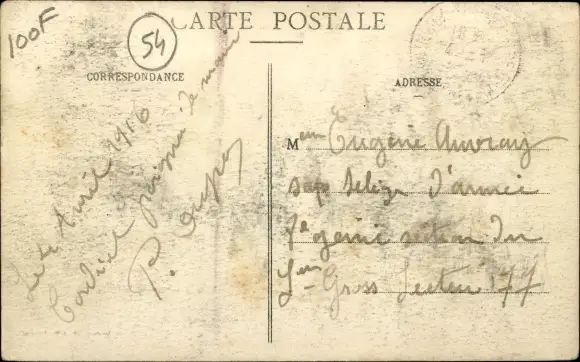 100F
54
CARTE POSTALE
CORRESPONDANCE
ADRESSE
Le 4 Avril 1916
Cordial poignée de main
P.
Mem Eugène Auvray
Sap d'armée
7e genie section du
Gross Secteur 177